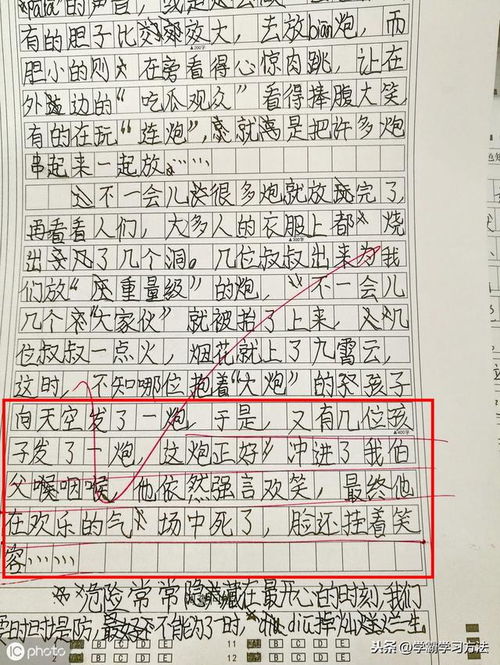 的声音，
有的胆子比较大，去放bian炮，而
胆小的则在旁看得心惊肉跳，让在
外边的“吃瓜观众”看得捧腹大笑，
有的在玩“连炮”，就是把许多炮
串起来一起放。……
不一会儿很多炮就放完了，
再看看人们，大多人的衣服上都烧
出了几个洞。几位叔叔出来为我
们放“重量级”的炮，不一会儿
几个“大家伙”就被抬了上来，几
位叔叔一点火，烟花就上了九霄云，
这时，不知哪位抱着“大炮”的孩子
向天空发了一炮，于是，又有几位孩
子发了一炮，这炮正好冲进了我伯
父喉咽喉，他依然强言欢笑，最终他
在欢乐的气场中死了，脸还挂着笑
容……
危险常常隐藏在最开心的时刻，我们
要时时提防，最好不能为了一时，
A B C D E 11 A B C D E
12
iC photo
头条@学霸学习方法